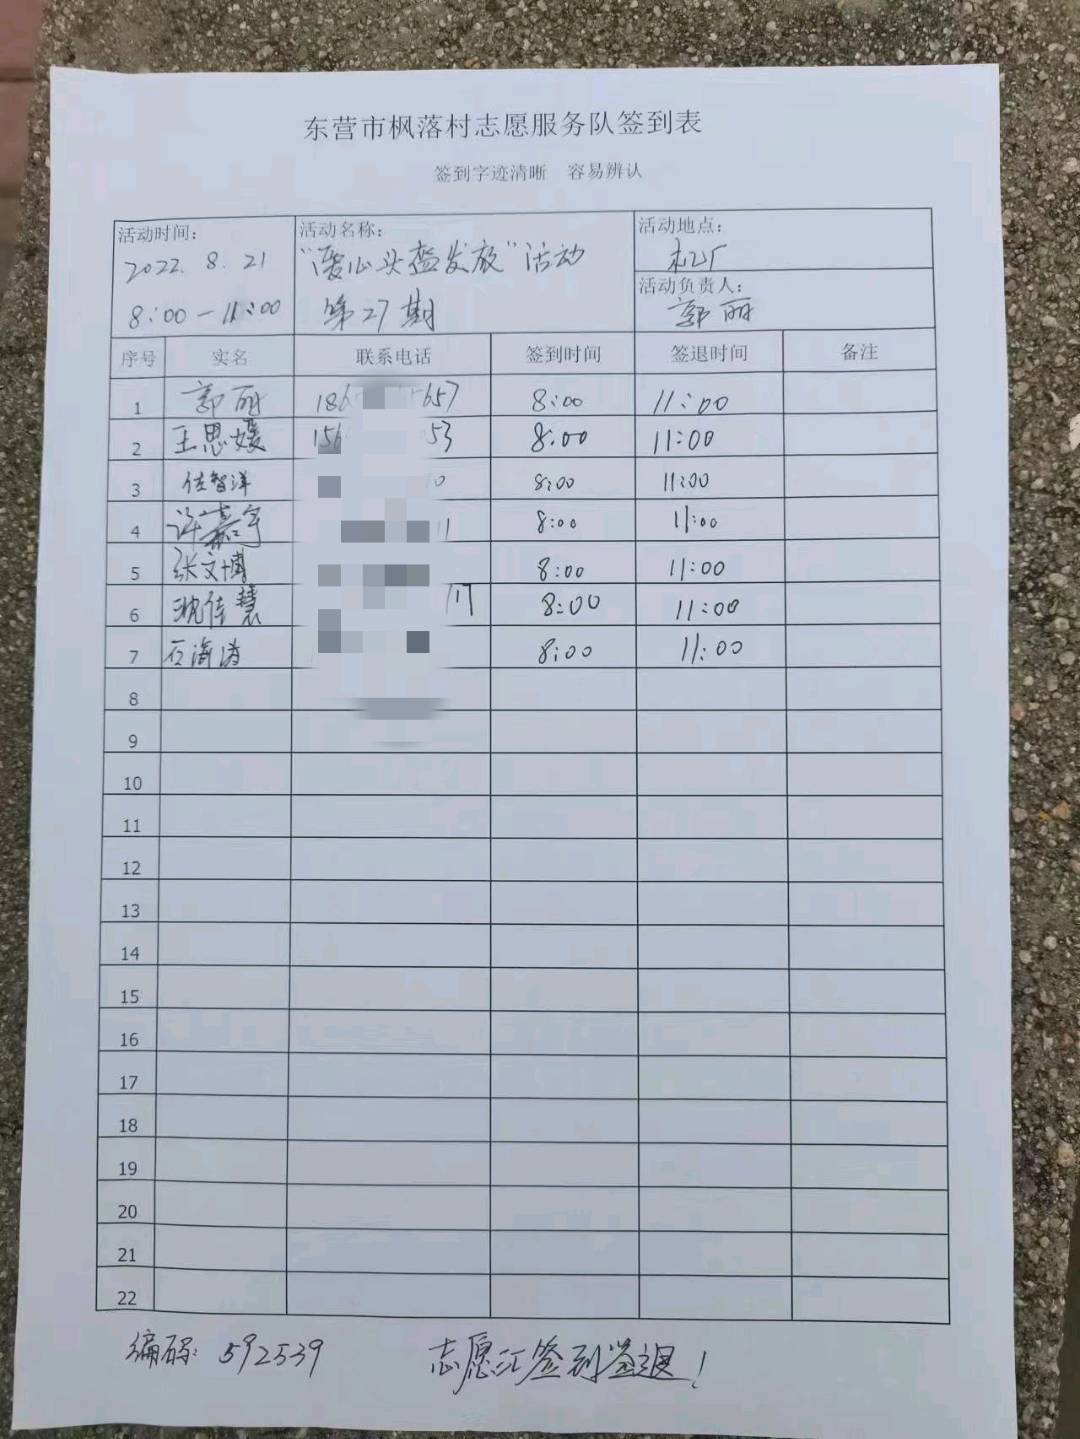 东营市枫落村志愿服务队签到表
签到字迹清晰 容易辨认
活动时间: 活动名称: 活动地点:
2022. 8. 21 "爱心头盔发放"活动
8:00-11:00 第27期
活动负责人:
郭丽
序号 实名 联系电话 签到时间 签退时间 备注
1 郭丽 186 657 8:00 11:00
2 王思媛 156 53 8:00 11:00
3 任智洋 0 8:00 11:00
4 许嘉宇 11 8:00 11:00
5 张文博 8:00 11:00
6 沈佳慧 17 8:00 11:00
7 石海涛 8:00 11:00
8
9
10
11
12
13
14
15
16
17
18
19
20
21
22
编码: 592539 志愿汇签到签退!